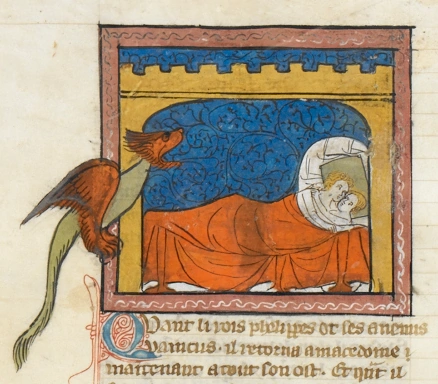 Quant li rois phelippes ot ses anemis
vaincus · il retorna a macedoine ⁊
maintenant a tout son ost · Et qnt il